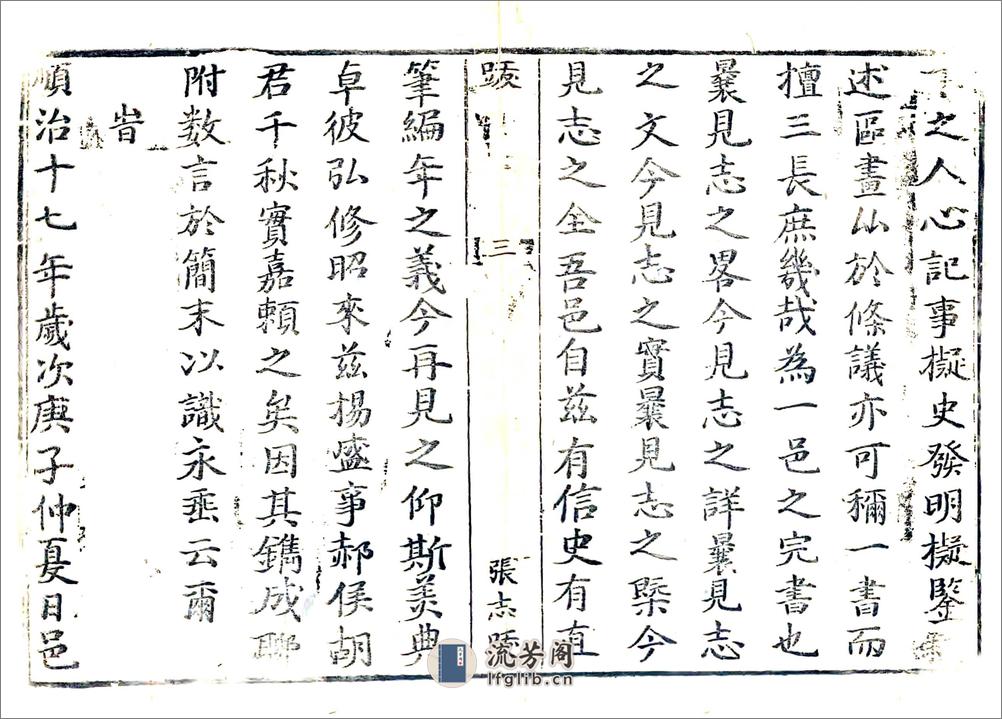 之人心記事擬史發明擬鑒
述區畫仙於條議亦可稱一書而
擅三長庶幾哉為一邑之完書也
曩見志之畧今見志之詳曩見志
之文今見志之實曩見志之槩今
見志之全吾邑自茲有信史有直
跋 三 張志跋
筆編年之義今再見之仰斯美典
卓彼弘修昭來茲揚盛事郝侯胡
君千秋實嘉賴之矣因其鐫成聊
附数言於簡末以識永垂云爾
旹
順治十七年歲次庚子仲夏日邑
流芳阁
lfglib.cn